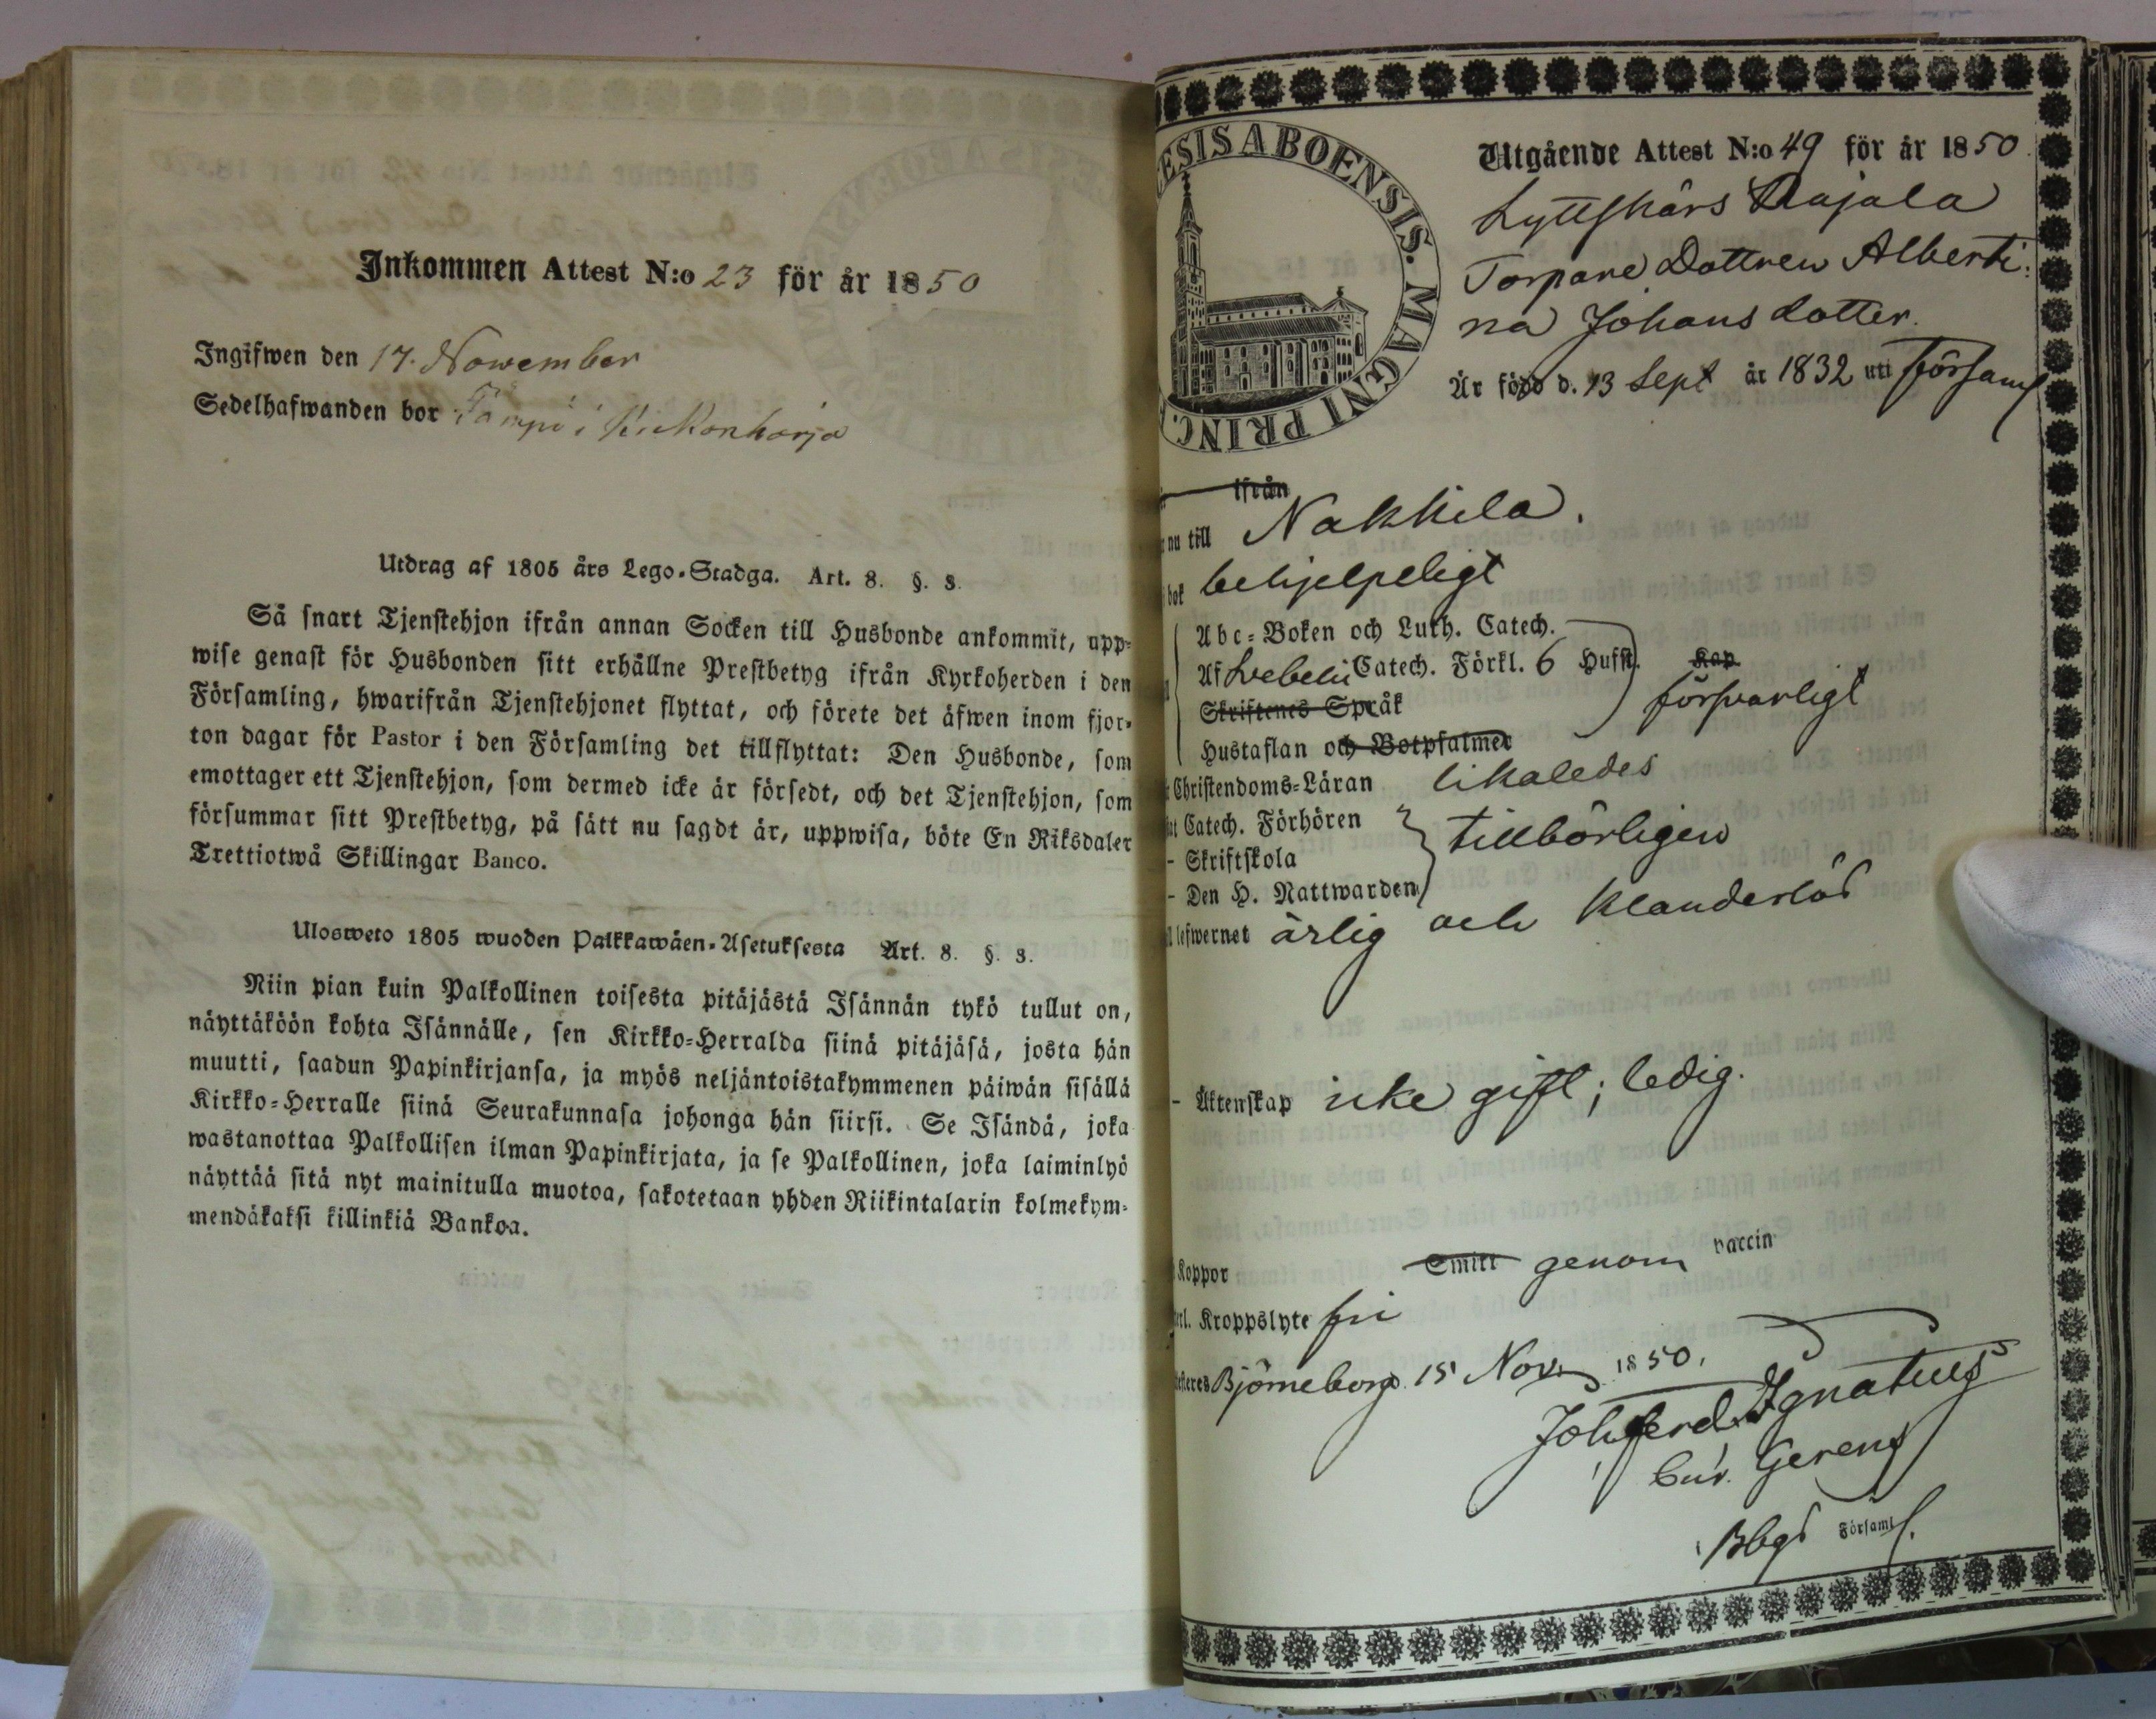 Inkommen Attest N:o 23 för år 1850
Ingifwen den 17. November
Sedelhafwanden bor Tampi i Kukonharja
Utdrag af 1805 års Lego-Stadga. Art. 8. §. 3.
Så snart Tjenstehjon ifrån annan Socken till Husbonde ankommit, upp-
wise genast för Husbonden sitt erhållne Prestbetyg ifrån Kyrkoherden i den
Församling, hwarifrån Tjenstehjonet flyttat, och förete det äfwen inom fjor-
ton dagar för Pastor i den Församling det tillflyttat: Den Husbonde, som
emottager ett Tjenstehjon, som dermed icke är försedt, och det Tjenstehjon, som
försummar sitt Prestbetyg, på sätt nu sagdt är, uppwisa, böte En Riksdaler
Trettiotwå Skillingar Banco.
Ulosweto 1805 wuoden Palkkawäen-Asetuksesta Art. 8. §. 3.
Niin pian kuin Palkollinen toisesta pitäjästä Isännän tykö tullut on,
näyttäköön kohta Isännälle, sen Kirkko-Herralda siinä pitäjäsä, josta hän
muutti, saadun Papinkirjansa, ja myös neljäntoistakymmenen päiwän sisällä
Kirkko-Herralle siinä Seurakunnasa johonga hän siirsi. Se Isändä, joka
wastanottaa Palkollisen ilman Papinkirjata, ja se Palkollinen, joka laiminlyö
näyttää sitä nyt mainitulla muotoa, sakotetaan yhden Riikintalarin kolmekym-
mendäkaksi killinkiä Bankoa.
ESIS ABOENSIS. MAGNI PRINC.
Utgående Attest N:o 49 för år 1850
Lyttskärs Rajala
Torpare Dottren Alberti:
na Johansdotter.
Är född d. 13 Sept år 1832 uti Församl
ifrån
nu till Nakkila.
bok behjelpeligt
Abc-Boken och Luth. Catech.
Af Svebelii Catech. Förkl. 6 Hufst. Kap
Skriftenes Språk försvarligt
Hustaflan och Botpsalmer
Christendoms-Läran likaledes
Catech. Förhören
- Skriftskola tillbörligen
- Den H. Nattwarden
lefwernet ärlig och klanderlös
- Äktenskap icke gift; ledig.
Koppor Smitt genom vaccin
Kroppslyte fri
Björneborg 15 Nov. 1850.
Joh Ferd. Ignatius
Cur. Gerens
Bbgs Församl.